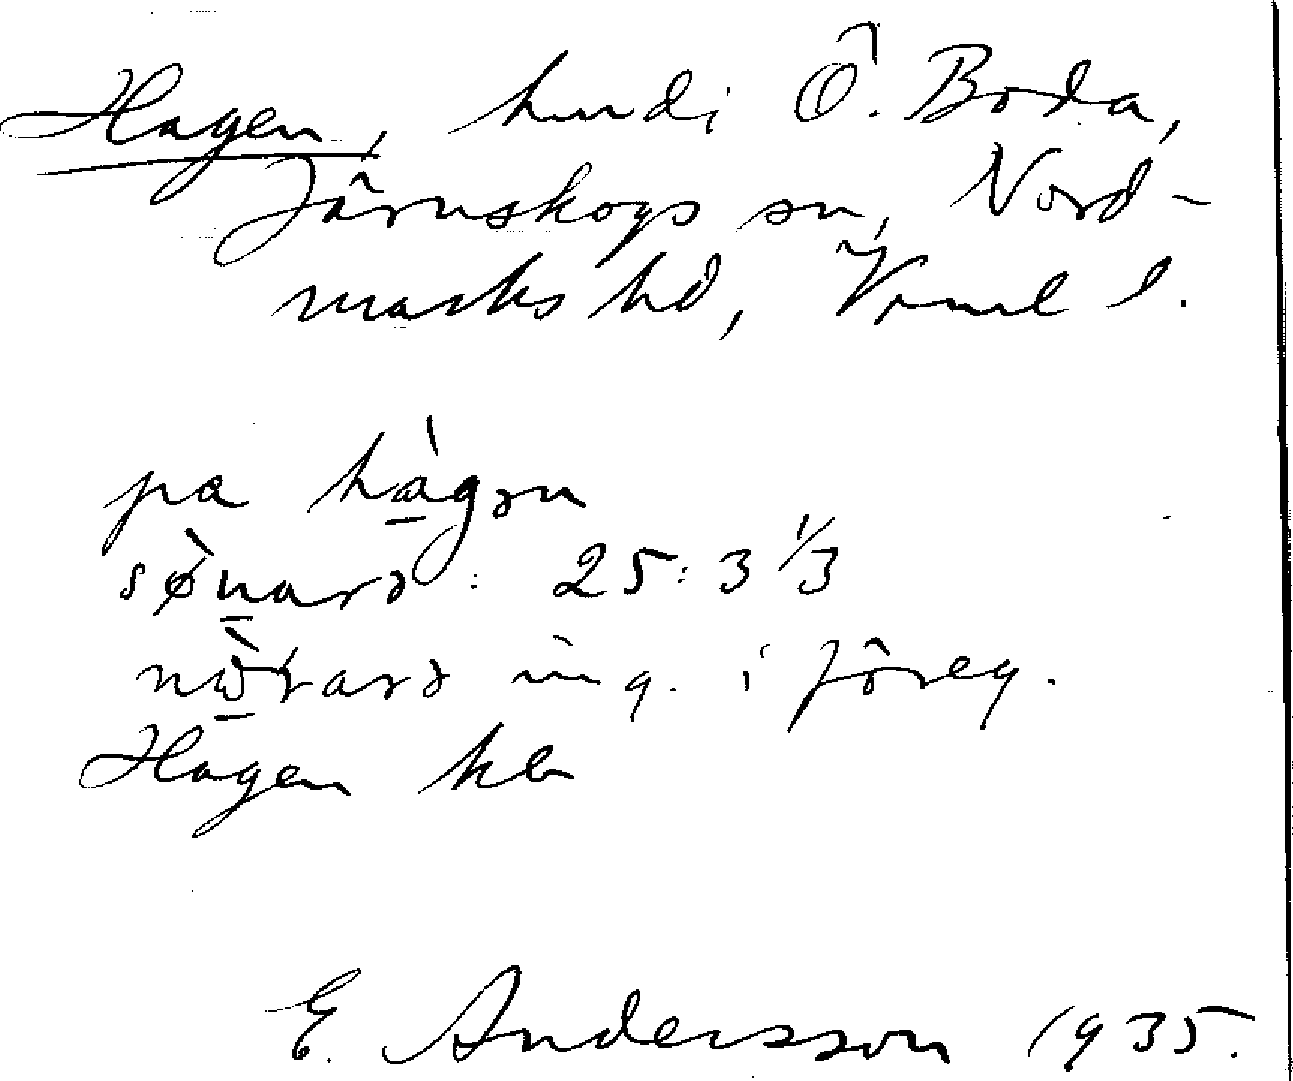 Hagen, hmd i Ö. Boda,
Järnskogs sn, Nord-
marks hd, Vrml l.
pa hàgən
sø̀narə: 25:3 1/3
nòrarə ing. i föreg.
Hagen ka
E. Andersson 1935.